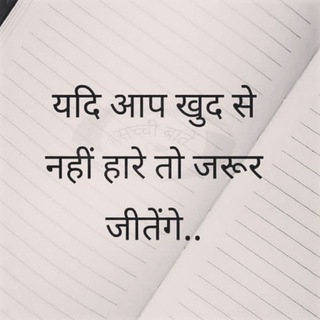 यदि आप खुद से
सच्ची बातें
नहीं हारे तो जरूर
जीतेंगे..